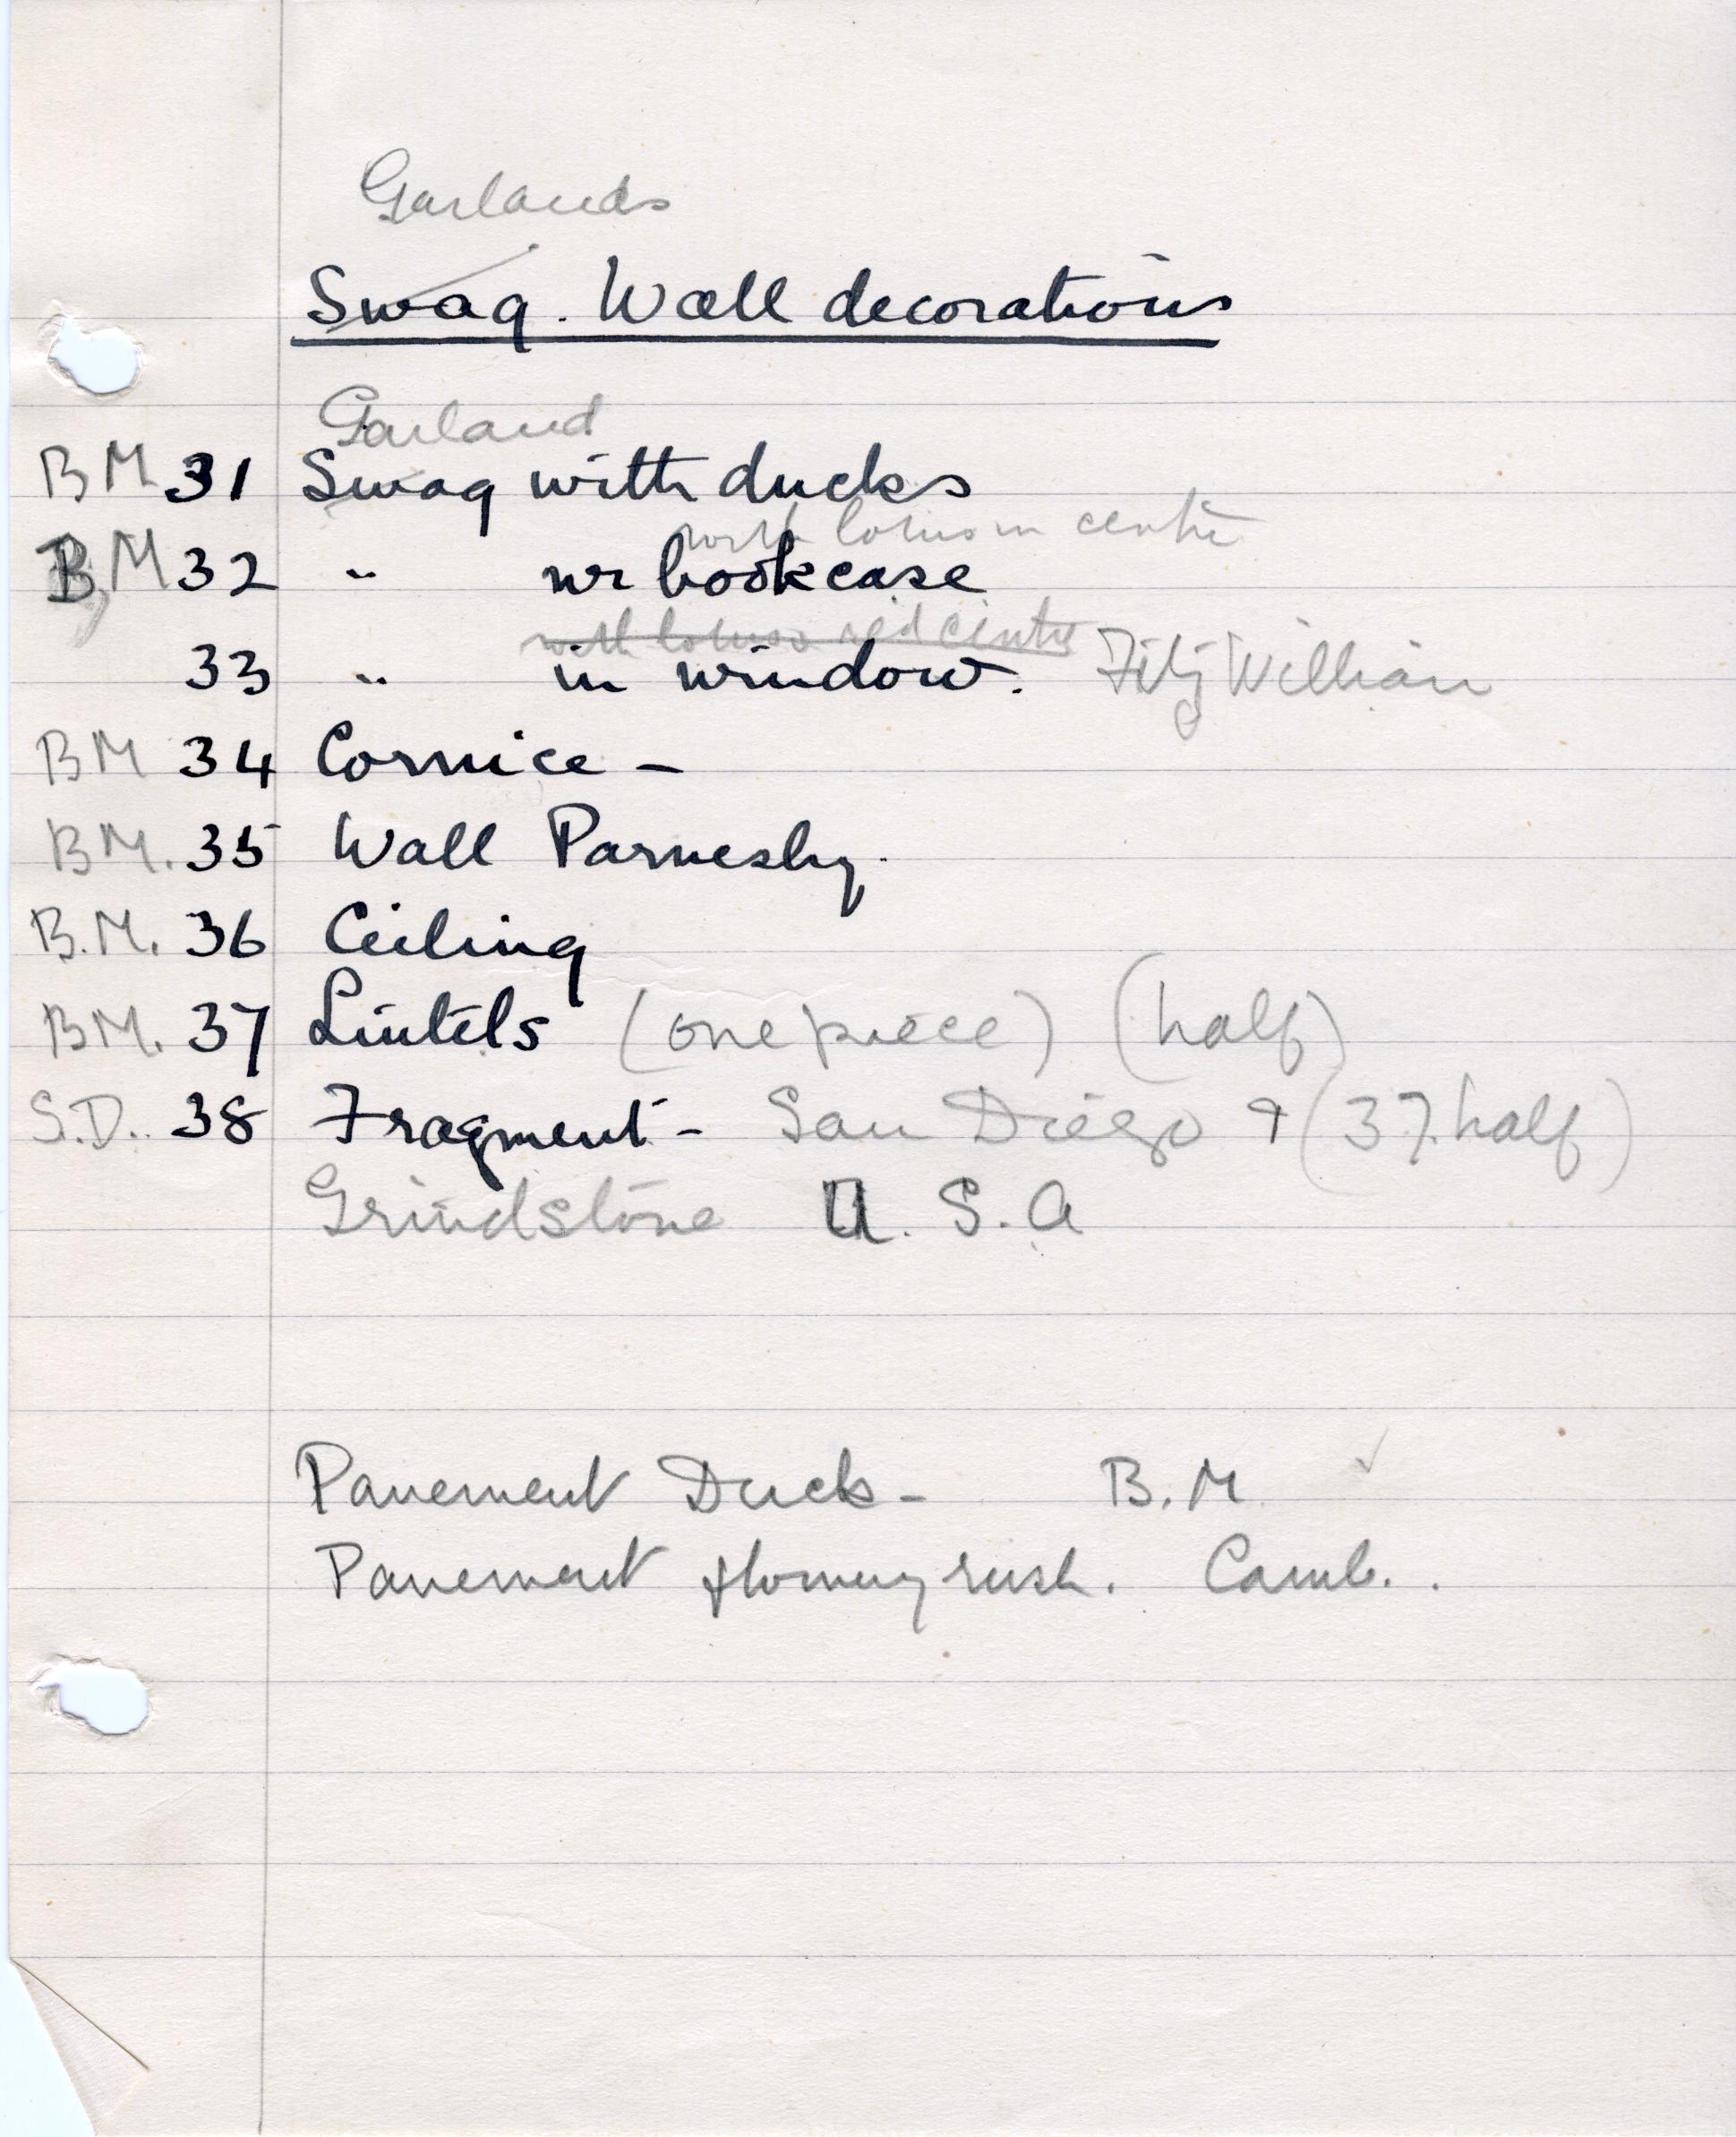 Garlands
Swag. Wall decorations
Garland
BM 31 Swag with ducks
with lotus in centre
BM 32 " nr bookcase
with lotus red centre
33 " in window. FitzWilliam
BM 34 Cornice -
BM. 35 Wall Parnesby.
B.M. 36 Ceiling
BM. 37 Lintels (one piece) (half)
S.D. 38 Fragment - San Diego + (37. half)
Grindstone U. S. A
Pavement Duck - B. M ✓
Pavement rush. Camb..